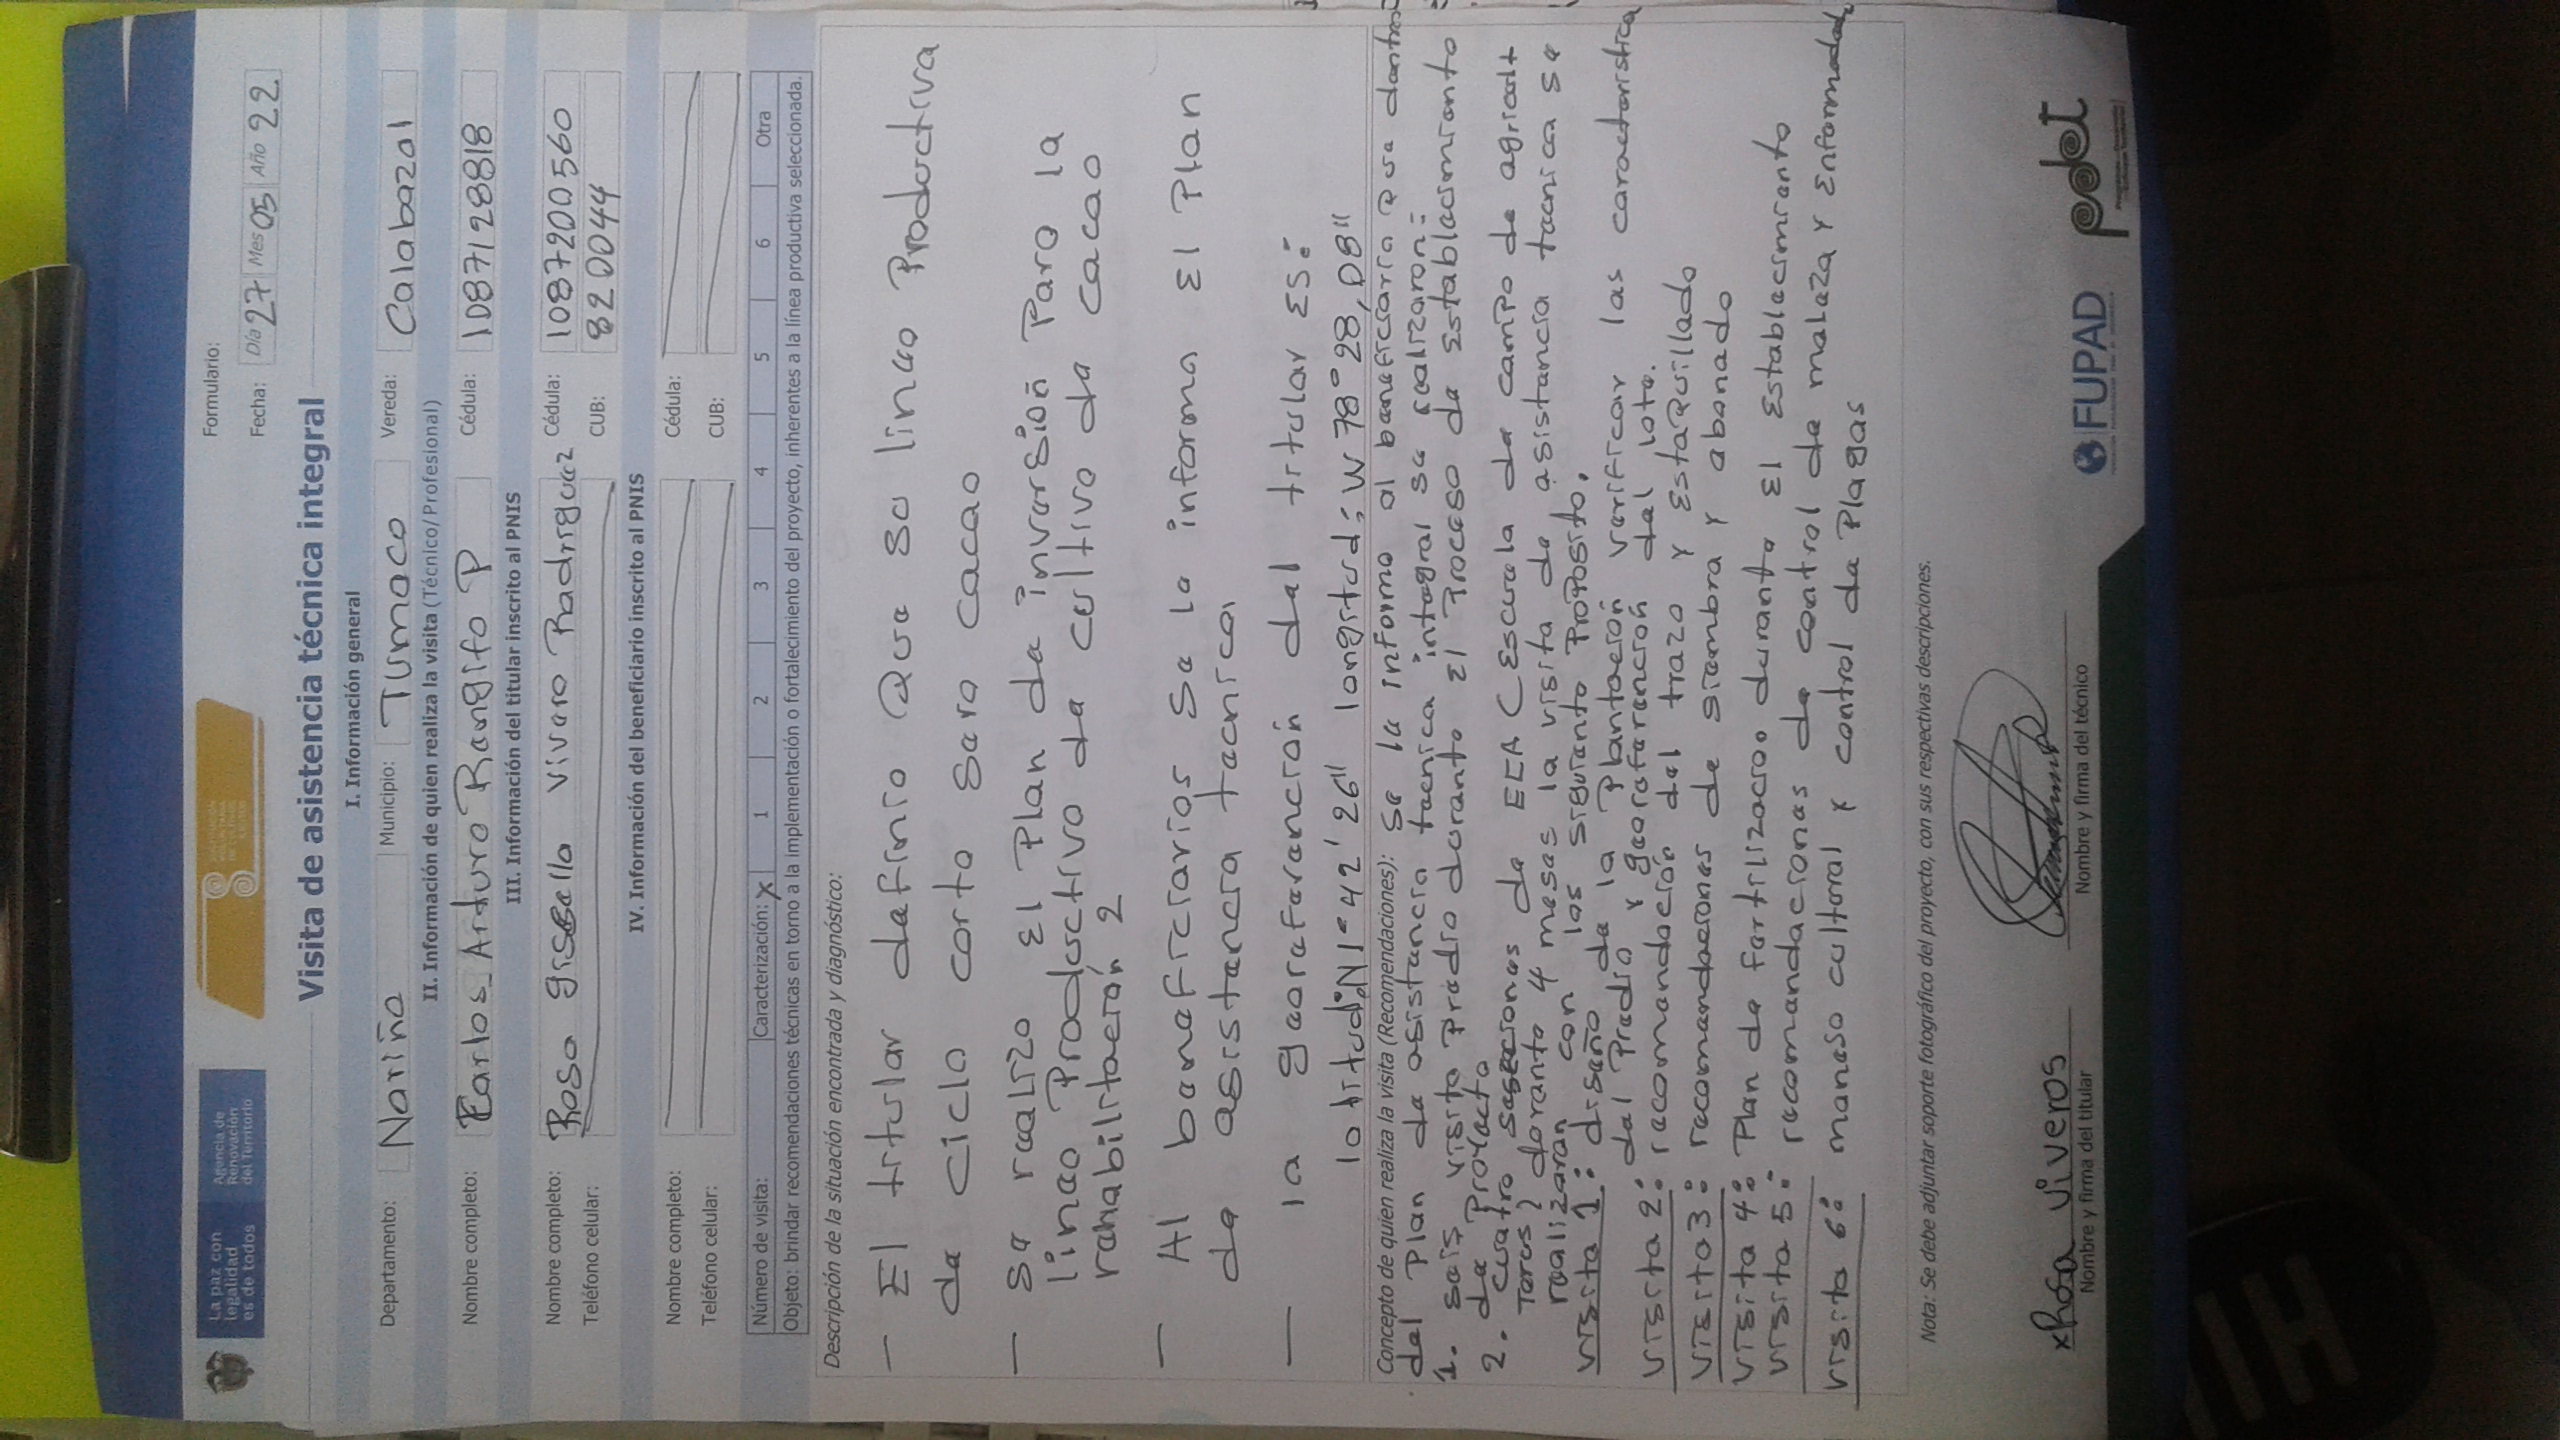 La paz con
legalidad
es de todos
Agencia de
Renovación
del Territorio
Formulario:
Fecha: Día 27 Mes 05 Año 22
Visita de asistencia técnica integral
I. Información general
Departamento: Nariño Municipio: Tumaco Vereda: Calabazal
II. Información de quien realiza la visita (Técnico/Profesional)
Nombre completo: Carlos Arturo Rangifo P Cédula: 1087128818
III. Información del titular inscrito al PNIS
Nombre completo: Rosa gisella vivaro Radriguaz Cédula: 1087200560
Teléfono celular: CUB: 820044
IV. Información del beneficiario inscrito al PNIS
Nombre completo: Cédula:
Teléfono celular: CUB:
Número de visita: Caracterización: X 1 2 3 4 5 6 Otra
Objeto: brindar recomendaciones técnicas en torno a la implementación o fortalecimiento del proyecto, inherentes a la línea productiva seleccionada.
Descripción de la situación encontrada y diagnóstico:
— El titular dafinio Qua su linao Productiva
da ciclo corto Sara cacao
— Sa raalizo El Plan da invarsion Para la
linao Productivo da cultivo da cacao
rahabilitacion 2
— Al banaficiarios Sa la informa El Plan
da asistancia tacnica,
— la gaorafarancion dal titular Es:
latitud:N1°42'26" longitud: W 78°28,08"
Concepto de quien realiza la visita (Recomendaciones): Sa la informo al banaficiario Qua dantro
dal Plan da asistancia tacnica intagral sa raalizaron:
1. sais visita Pradio duranta El Procaso da Establacimianto
da Proyacto
2. cuatro sacciones da ECA (Escuala da campo da agricult
Toras) duranta 4 masas la visita da asistancia tacnica sa
raalizaran con las siguianta Proposito.
visita 1: disaño da la Plantacion varificar las caractaristica
dal Pradio y gaorafarancion dal lota.
visita 2: racomandacion dal trazo y EstaQuillado
visita 3: racomandaciones da siambra y abonado
visita 4: Plan da fartilizacio. duranta El Establacimianto
visita 5: racomandacionas da control da malaza y Enfarmadada
visita 6: manaso cultural y control da Plagas
Nota: Se debe adjuntar soporte fotográfico del proyecto, con sus respectivas descripciones.
xRosa Viveros
Nombre y firma del titular
Nombre y firma del técnico
FUPAD
pdet